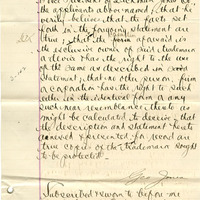 the applicants above named, that he
verily believes that the facts set
forth in the foregoing statement are
true; that the firm aforesaid is
the exclusive owner of said trademark
device has the right to the use
of the same as described in said
statement; that no other person, firm
or corporation have the right to such
either in the identical form or any
such near resemblance thereto as
might be calculated to deceive; that
the description and statement hereto
annexed & presented for record are
true copies of the Trademark sought
to be protected
Subscribed & sworn to before me